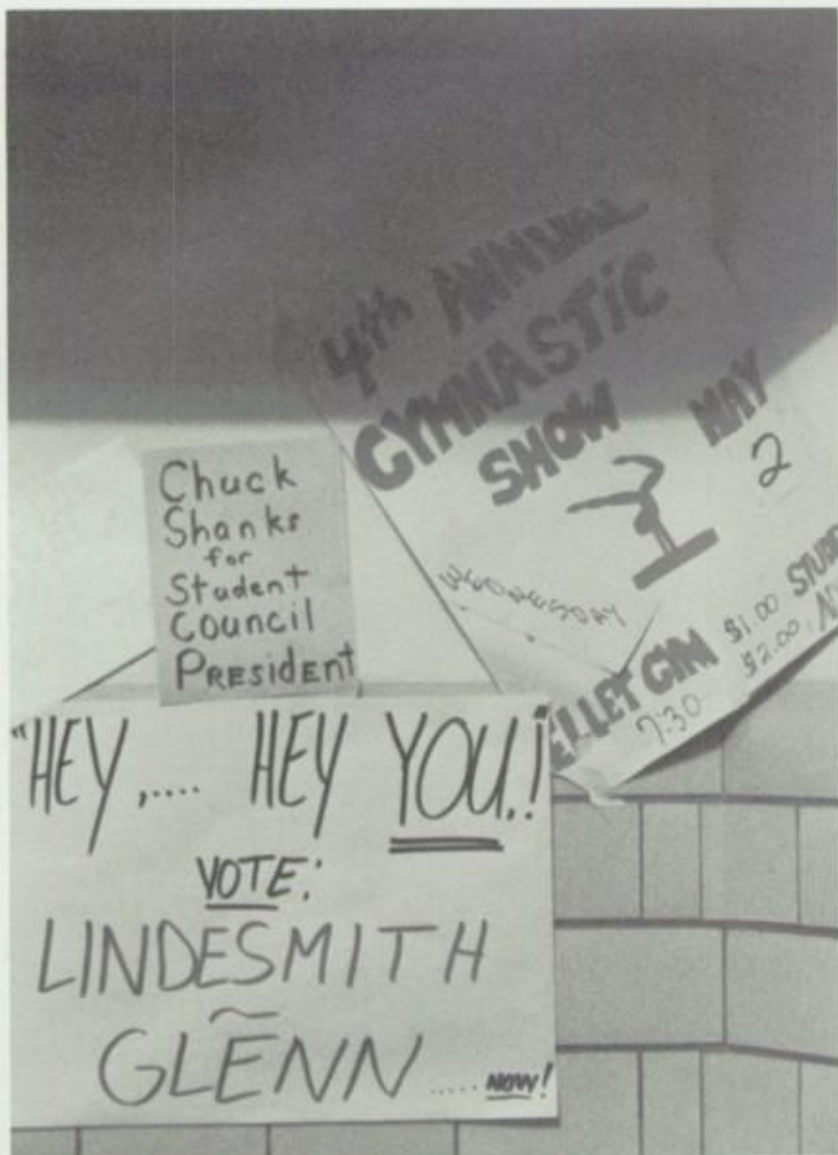 4th ANNUAL
GYMNASTIC
SHOW MAY
2
WEDNESDAY
ELLET GYM $1.00
7:30 $2.00
Chuck
Shanks
for
Student
Council
PRESIDENT
"HEY,.... HEY YOU.!
VOTE:
LINDESMITH
~
GLENN ..... NOW!